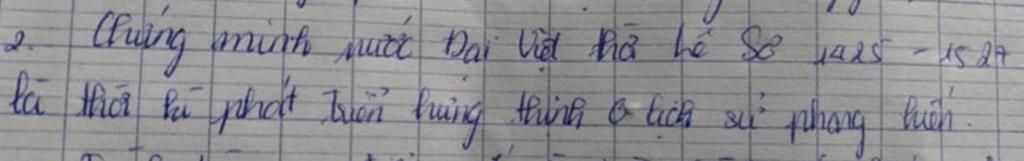 2. Chứng minh nước Đại Việt thời Lê Sơ 1425 - 1527
là thời kì phát triển hưng thịnh ở lịch sử phong kiến.